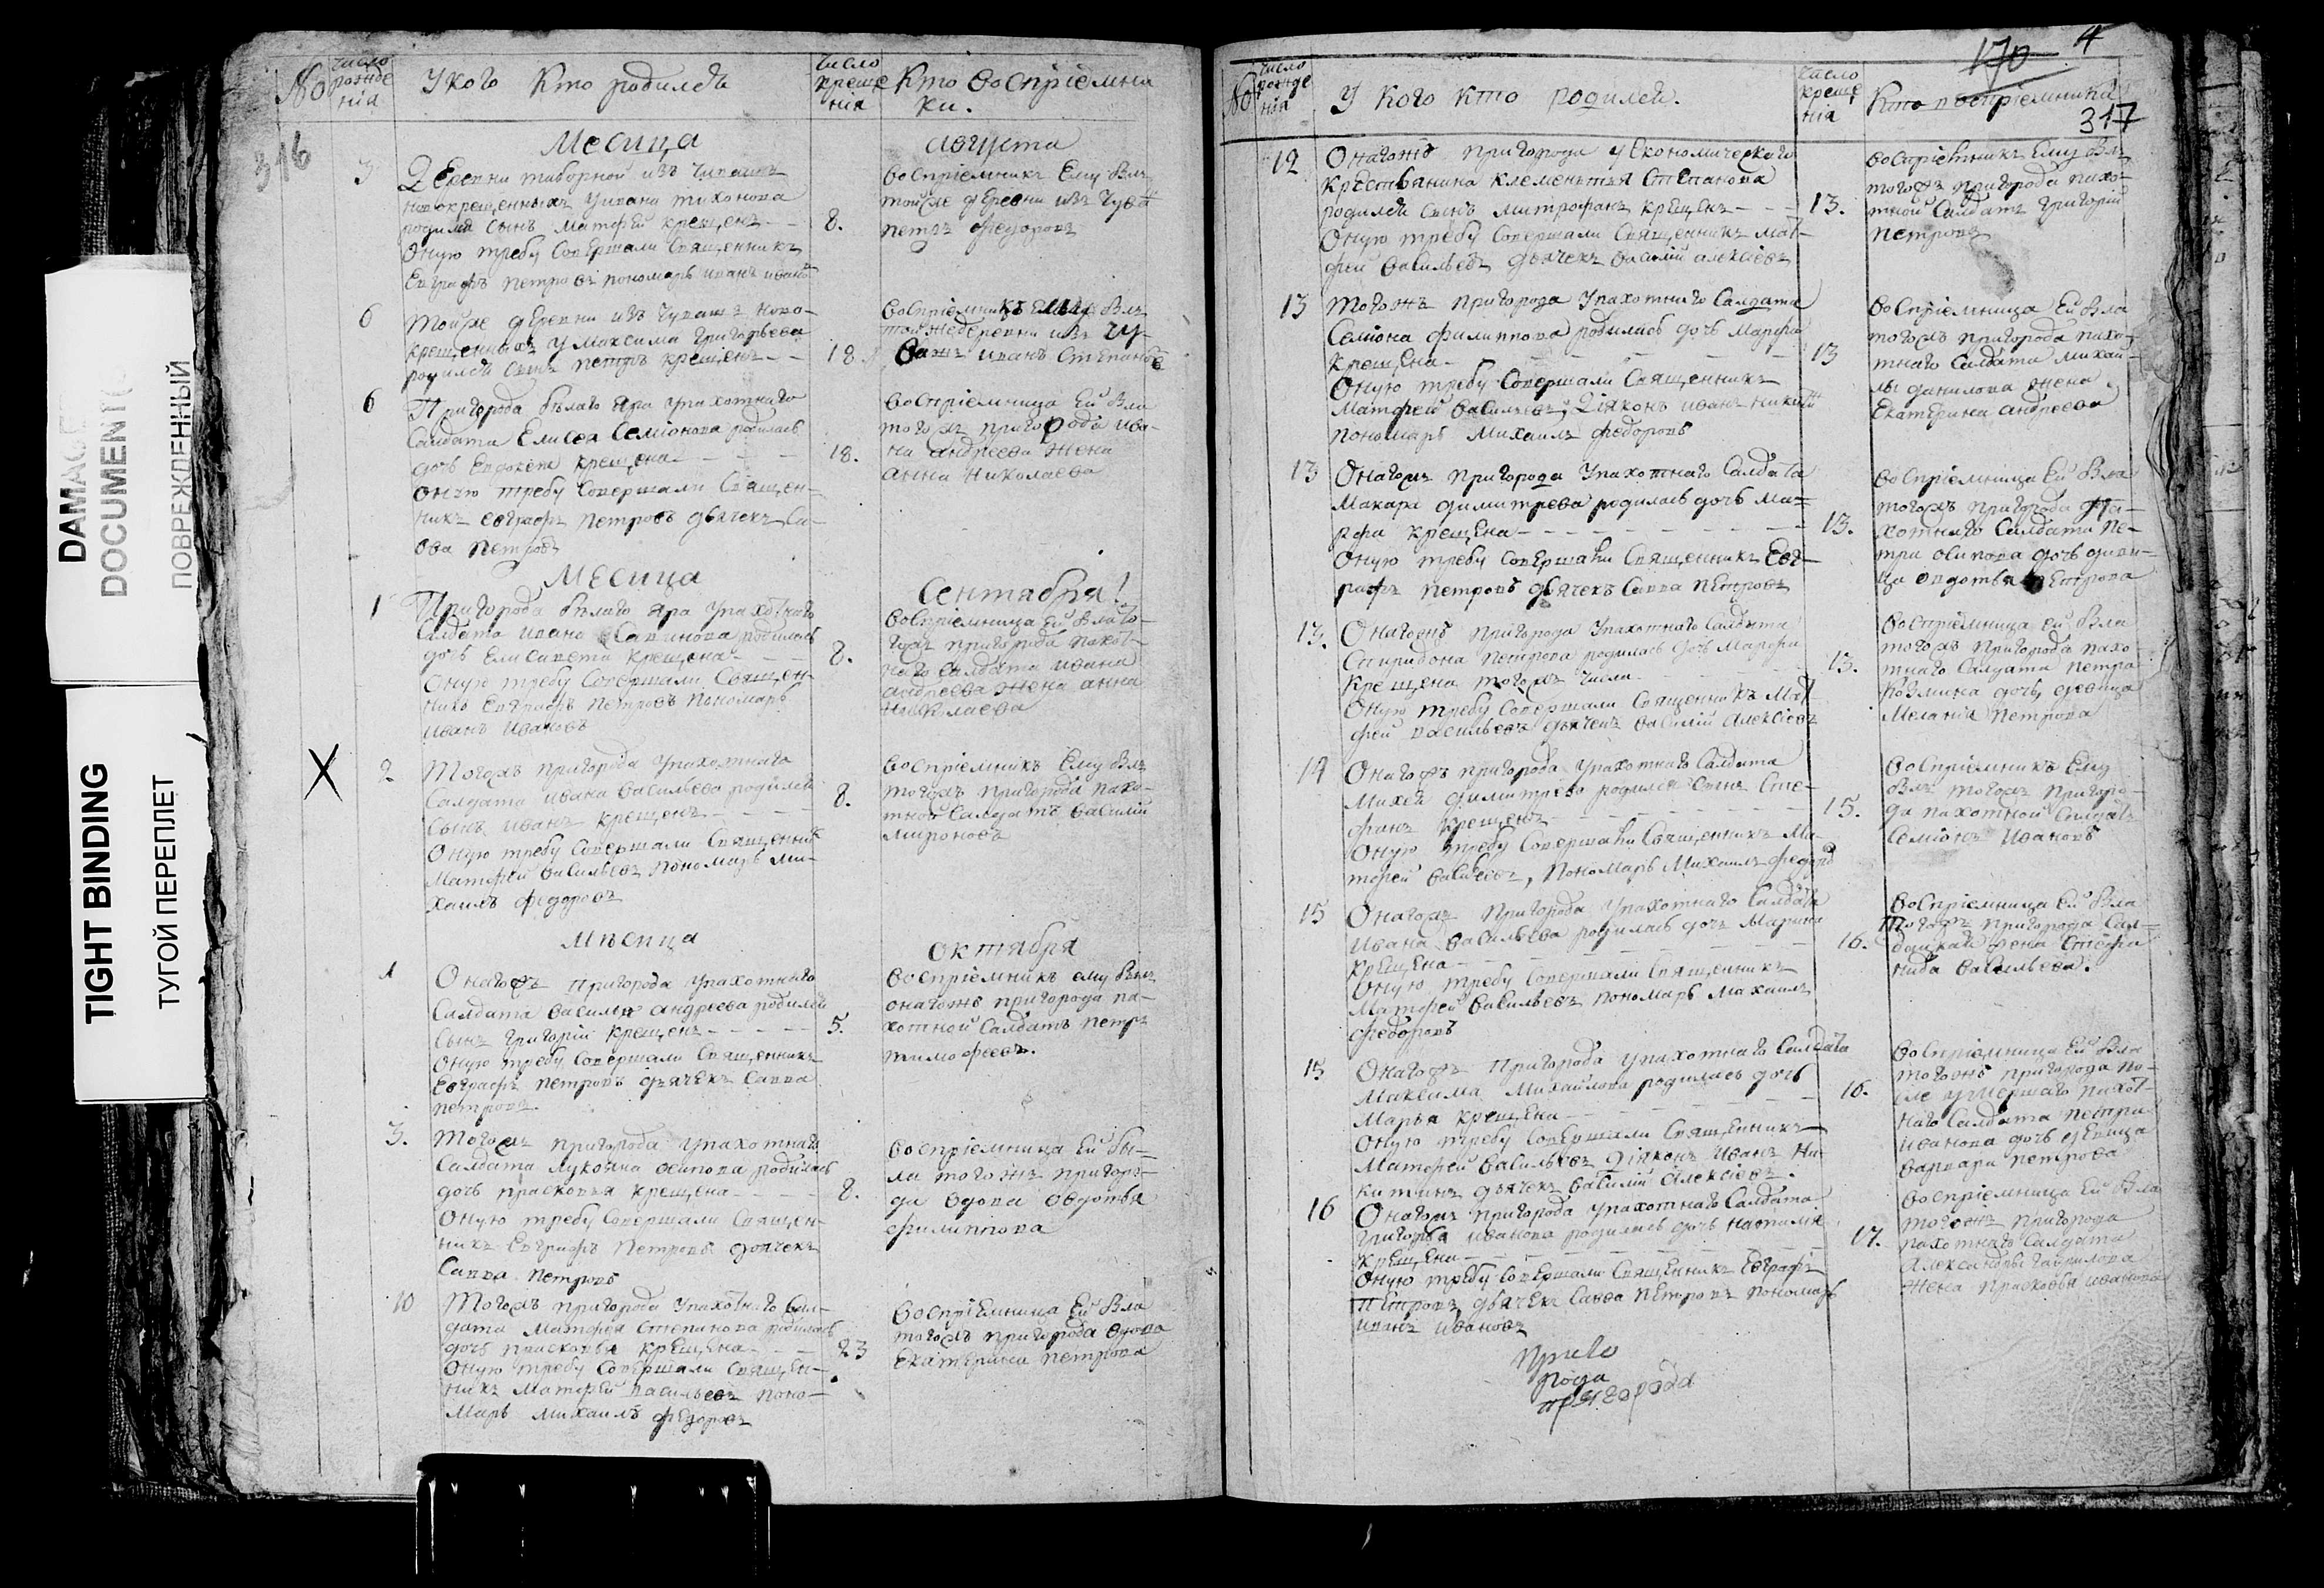 DAMAGED
DOCUMENT
ПОВРЕЖДЕННЫЙ
TIGHT BINDING
ТУГОЙ ПЕРЕПЛЕТ
316
No
число рожде нiя
У кого Кто родился
число креще нiя
Кто восприемни
ки.
Месяца Августа
3
Деревни новокрещенныхъ у Ивана Тихонова
родился сынъ Матфей крещенъ
8.
Оную требу Совершали Священникъ
Евграфъ Петровъ пономарь Иванъ Иванов
восприемникъ Ему былъ
тойже деревни изъ Чуваш
Петръ Федоровъ
6
Тойже деревни изъ Чувашъ ново-
крещенныхъ у Максима Григорьева
родился сынъ Петръ крещенъ
18
восприемникъ Ему былъ
тойже деревни изъ Чу-
вашъ Иванъ Степановъ
6
Пригорода белаго Яра у пахотнаго
Салдата Елисея Семионова родилась
дочь Евдокея крещена
18.
оную требу Совершали Священ-
никъ Евграфъ Петровъ дьячекъ Са-
ва Петровъ
восприемница Ей была
тогожъ пригорода Ива-
на Андреева жена
Анна Николаева
Месяца Сентября
1
Пригорода белаго Яра у пахотнаго
Салдата Ивана Савинова родилась
дочь Елисавета крещена
8.
Оную требу Совершали Священ-
никъ Евграфъ Петровъ пономарь
Иванъ Ивановъ
восприемница Ей была то-
гожъ пригорода пахот-
наго Салдата Ивана
Андреева жена Анна
Николаева
X
2
Тогожъ пригорода у пахотнаго
Салдата Ивана Васильева родился
сынъ Иванъ крещенъ
8.
Оную требу Совершали Священник
Матфей Васильевъ пономарь Ми-
хаилъ Федоровъ
восприемникъ Ему былъ
тогожъ пригорода пахо-
тной Салдатъ Василий
Мироновъ
Месяца октября
1
Онагожъ пригорода у пахотнаго
Салдата Василья Андреева родился
сынъ Григорiй крещенъ
5.
Оную требу Совершали Священникъ
Евграфъ Петровъ дьячекъ Савва
Петровъ
восприемникъ ему былъ
онагожъ пригорода па-
хотной Салдатъ Петръ
Тимофеевъ.
3.
Тогожъ пригорода у пахотнаго
Салдата Лукояна Осипова родилась
дочь Прасковья крещена
8.
Оную требу Совершали Священ-
никъ Евграфъ Петровъ дьячекъ
Савва Петровъ
восприемница Ей бы-
ла тогожъ пригоро-
да вдова Овдотья
Филиппова
10
Тогожъ пригорода у пахотнаго Сал-
дата Матфея Степанова родилась
дочь Прасковья крещена
23
Оную требу Совершали Священ-
никъ Матфей Васильевъ поно-
марь Михаилъ Федоровъ
восприемница Ей была
тогожъ пригорода вдова
Екатерина Петрова
170
4
317
No
число рожде нiя
У кого кто родился.
число креще нiя
Кто восприемники
12
Онагожъ пригорода у Економическаго
крестьянина Клементья Степанова
родился сынъ Митрофанъ крещенъ
13.
Оную требу Совершали Священникъ Мат-
фей Васильевъ дьячекъ Василiй Алексiевъ
восприемникъ Ему былъ
тогожъ пригорода пахо-
тной Салдатъ Григорий
Петровъ
13
Тогожъ пригорода у пахотнаго Салдата
Семiона Филиппова родилась дочь Марфа
крещена
13
Оную требу Совершали Священникъ
Матфей Васильевъ, Дiяконъ Иванъ Никитин
пономарь Михаилъ Федоровъ
восприемница Ей была
тогожъ пригорода пахо-
тнаго Салдата Михай-
лы Данилова жена
Екатерина Андреева
13
Онагожъ пригорода у пахотнаго Салдата
Макара Димитрева родилась дочь Ма-
рфа крещена
13.
Оную требу Совершали Священникъ Евг-
рафъ Петровъ дьячекъ Савва Петровъ
восприемница Ей была
тогожъ пригорода па-
хотнаго Салдата Пе-
тра Осипова дочь деви-
ца Овдотья Петрова
13.
Онагожъ пригорода у пахотнаго Салдата
Спиридона Петрова родилась дочь Марфа
крещена тогожъ числа
13.
Оную требу Совершали Священникъ Мат-
фей Васильевъ дьячекъ Василiй Алексiевъ
восприемница Ей была
тогожъ пригорода пахо
тнаго Салдата Петра
Козмина дочь девица
Меланiя Петрова
14
Онагожъ пригорода у пахотнаго Салдата
Михея Димитрева родился сынъ Сте-
фанъ крещенъ
15.
Оную требу Совершали Священникъ Ма-
тфей Васильевъ, пономарь Михаилъ Федоров
восприемникъ Ему
былъ тогожъ пригоро-
да пахотной Салдатъ
Семiонъ Ивановъ
15
Онагожъ пригорода у пахотнаго Салдата
Ивана Васильева родилась дочь Марина
крещена
16.
Оную требу Совершали Священникъ
Матфей Васильевъ пономарь Михаилъ
Федоровъ
восприемница Ей была
тогожъ пригорода Сал-
дацкая жена Степа
нида Васильева.
15
Онагожъ пригорода у пахотнаго Салдата
Максима Михайлова родилась дочь
Марья крещена
16.
Оную требу Совершали Священникъ
Матфей Васильевъ Дiяконъ Иванъ Ни-
китинъ дьячекъ Василiй Алексiевъ.
восприемница Ей была
тогожъ пригорода по-
сле умершаго пахот-
наго Салдата Петра
Иванова дочь девица
Варвара Петрова
16
Онагожъ пригорода у пахотнаго Салдата
Григорья Иванова родилась дочь Наталья
крещена
17.
Оную требу Совершали Священникъ Евграфъ
Петровъ дьячекъ Савва Петровъ пономарь
Иванъ Ивановъ
восприемница Ей была
тогожъ пригорода
пахотнаго Салдата
Александры Гаврилова
жена Прасковья Иванова
Приго
рода
пригорода